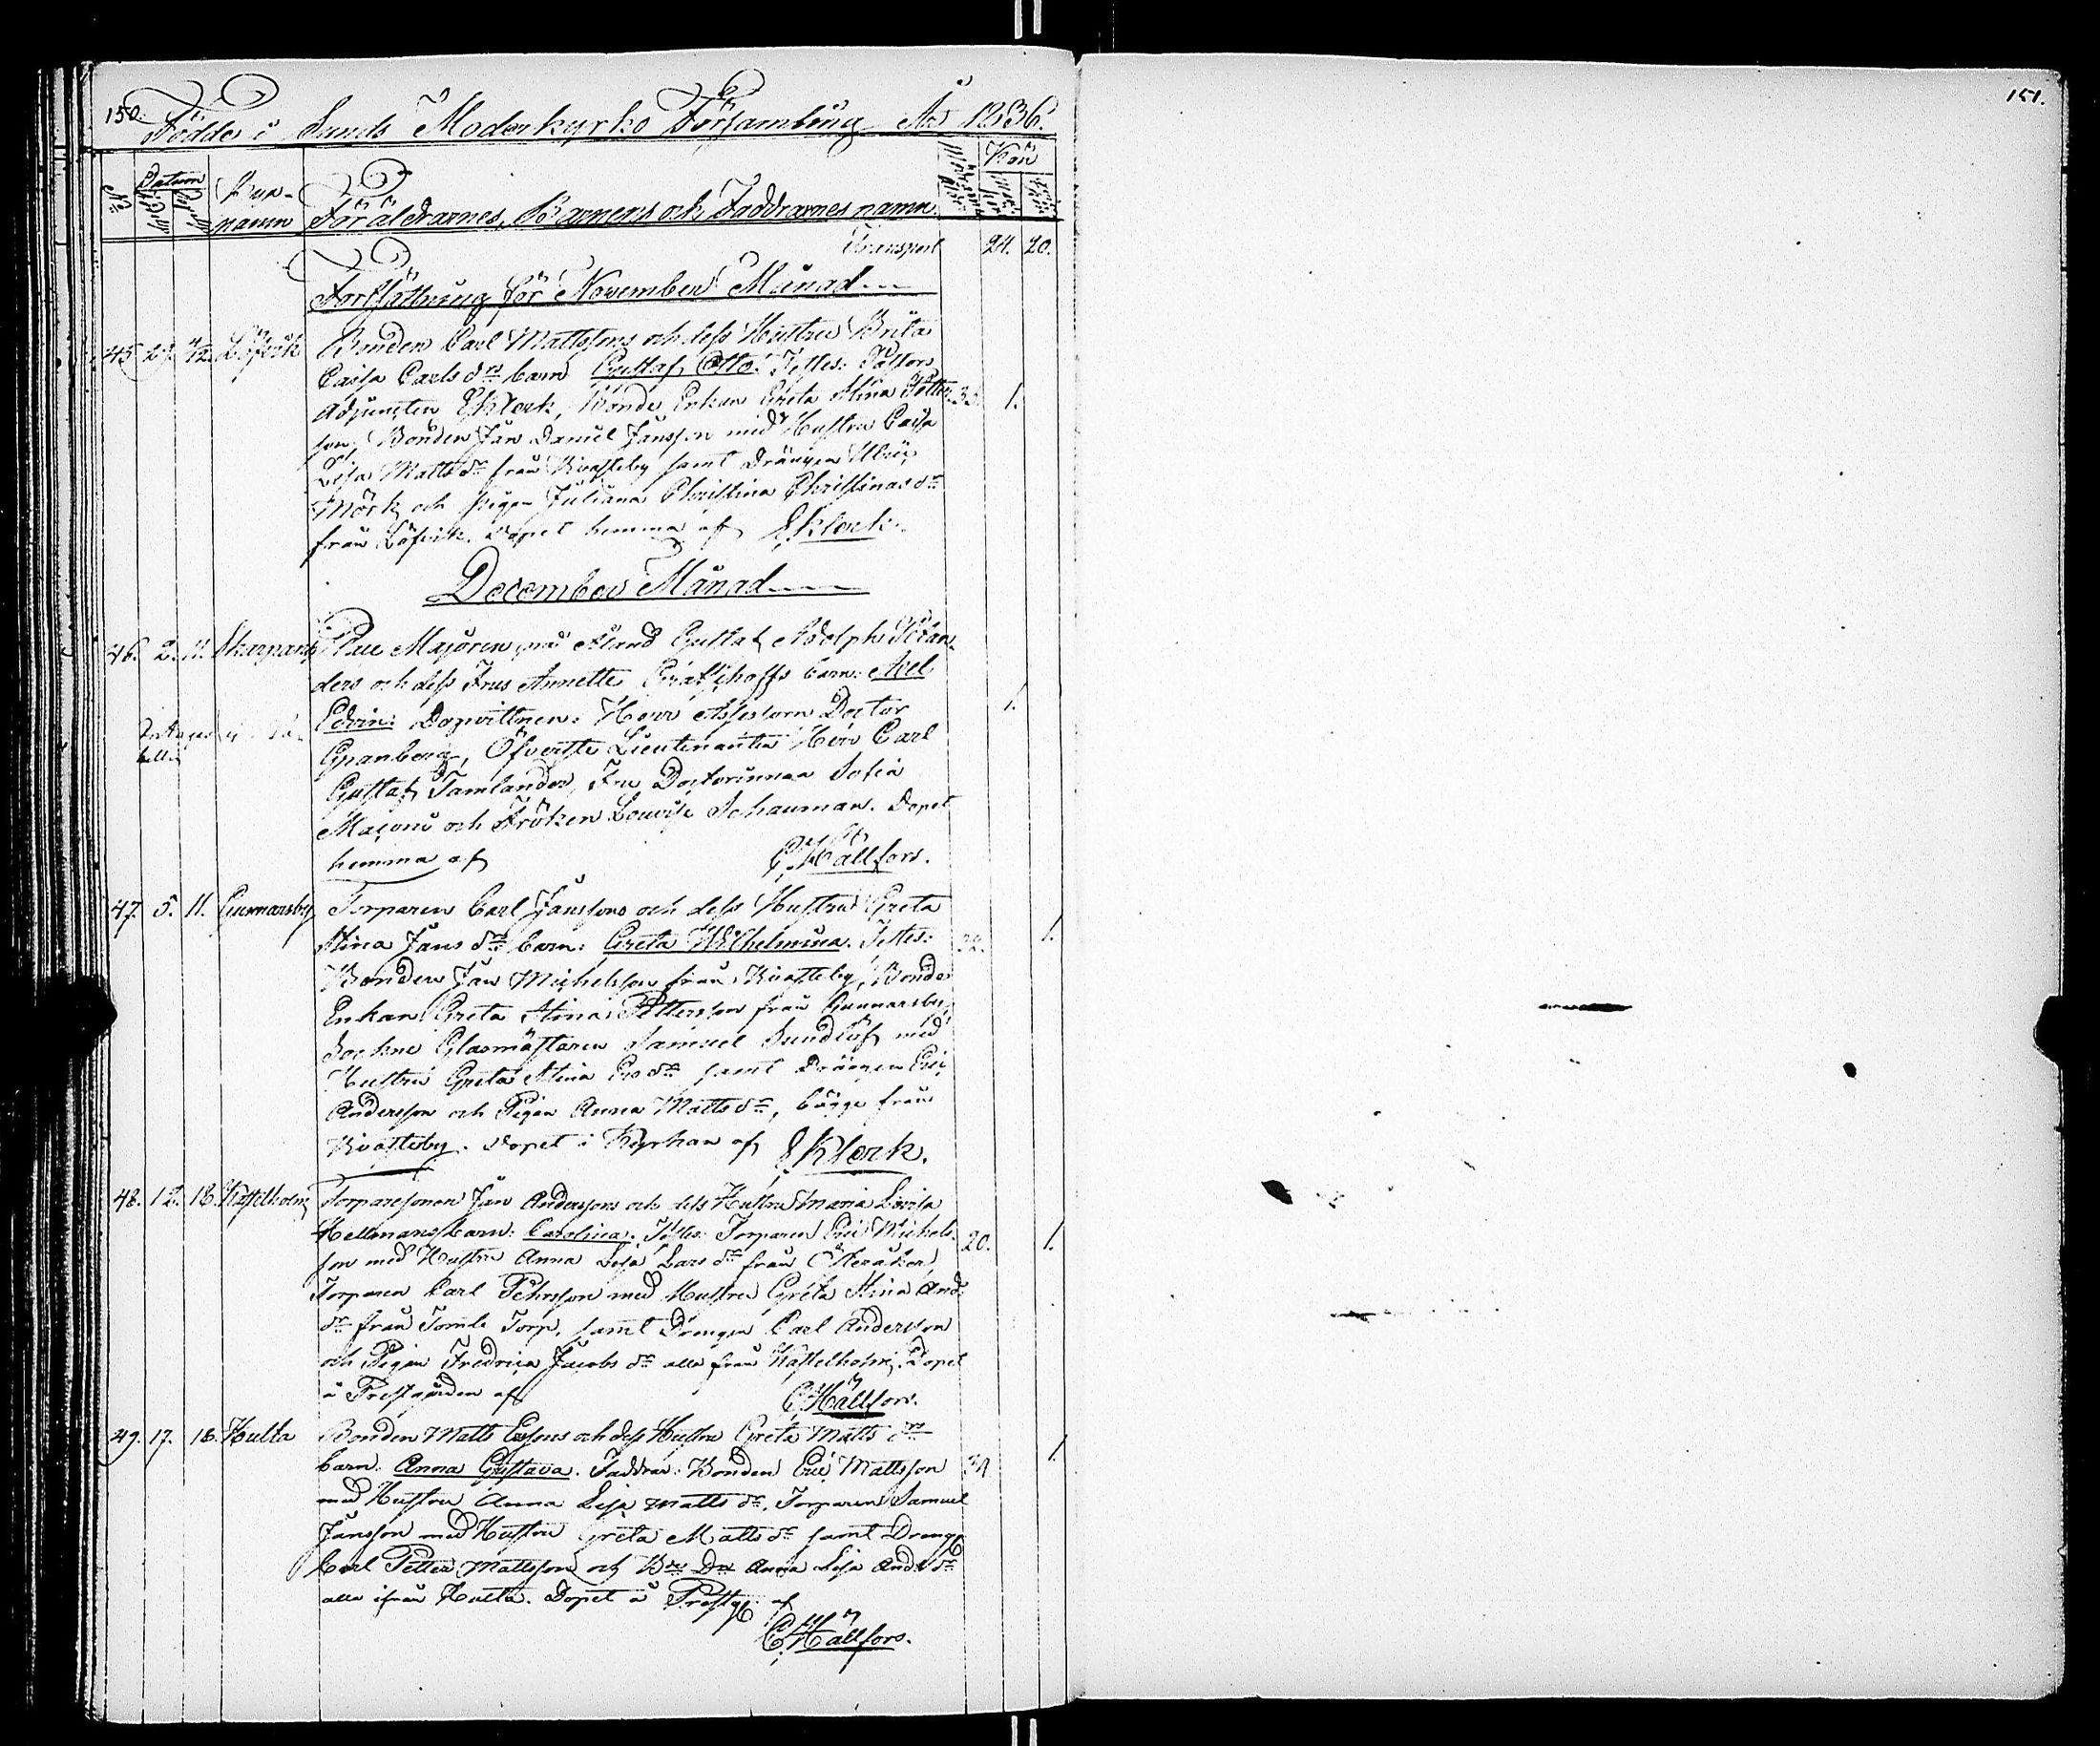 150.
151.
Födde i Sunds Moderkyrko Församling År 1836.
No Datum Byn- namn Föräldrarnes, Barnens och Faddrarnes namn. Kön
Transport 24. 20.
Fortsättning för November Månad
45. 27. 4/12 Löfvik Bonden Carl Mattssons och dess Hustru Brita
Caisa Carls drs barn Gustaf Otto. Testes: Pastors
Adjuncten Eklerk, Bonde Enkan Greta Stina Petters- 33. 1.
son, Bonden Jan Daniel Jansson med Hustru Caisa
Lisa Matts dr från Kvasteby samt Drängen
Mörk och pigan Juliana Christina Christinas dr
från Löfvik. Döpet hemma af Eklerk.
December Månad
46. 2. 11. Skarpans Majoren på Åland Gustaf Adolph
ders och dess Frus Annette barn: Axel
Edvin: Dopvittnen: Herr Assessorn Doctor 1.
Granberg, Öfverste Lieutenanten Herr Carl
Gustaf Tamlander, Fru Doctorinnan Sofia
och Fröken Lovise Schauman. Döpet
hemma af C. Hällfors.
47. 5. 11. Gunnarsby Torparen Carl Janssons och dess Hustru Greta
Stina Jans drs barn: Greta Wilhelmina. Testes: 32. 1.
Bonden Jan Michelsson från Kvasteby, Bonde
Enkan Greta Stina Pettersson från Gunnarsby,
Sockne Glasmästaren Samuel Sundlöf med
Hustru Greta Stina Ers dr samt Drängen Eric
Andersson och Pigan Anna Matts dr, bägge från
Kvasteby. Döpet i Kyrkan af Eklerk.
48. 12. 18. Kastelholm Torparesonen Jan Anderssons och dess Hustru Maria Lovisa
Hellmans barn: Carolina. Testes: Torparen Eric Michels- 20. 1.
son med Hustru Anna Lisa Lars dr från
Torparen Carl Pehrsson med Hustru Greta Stina And.
dr från Tomle Torp, samt Drengen Carl Andersson
och Pigan Fredrica Jacobs dr alla från Kastelholm. Döpet
å Prestgården af C. Hällfors.
49. 17. 18. Hulta Bonden Matts Erssons och dess Hustru Greta Matts drs
barn: Anna Gustava. Faddrar: Bonden Eric Mattsson 34 1.
med Hustru Anna Lisa Matts dr, Torparen Samuel
Jansson med Hustru Greta Matts dr samt Dreng
Carl Petter Mattsson och Bde Dr Anna Lisa Ands dr
alla ifrån Hulta. Döpet å Prestg. af
C. Hällfors.